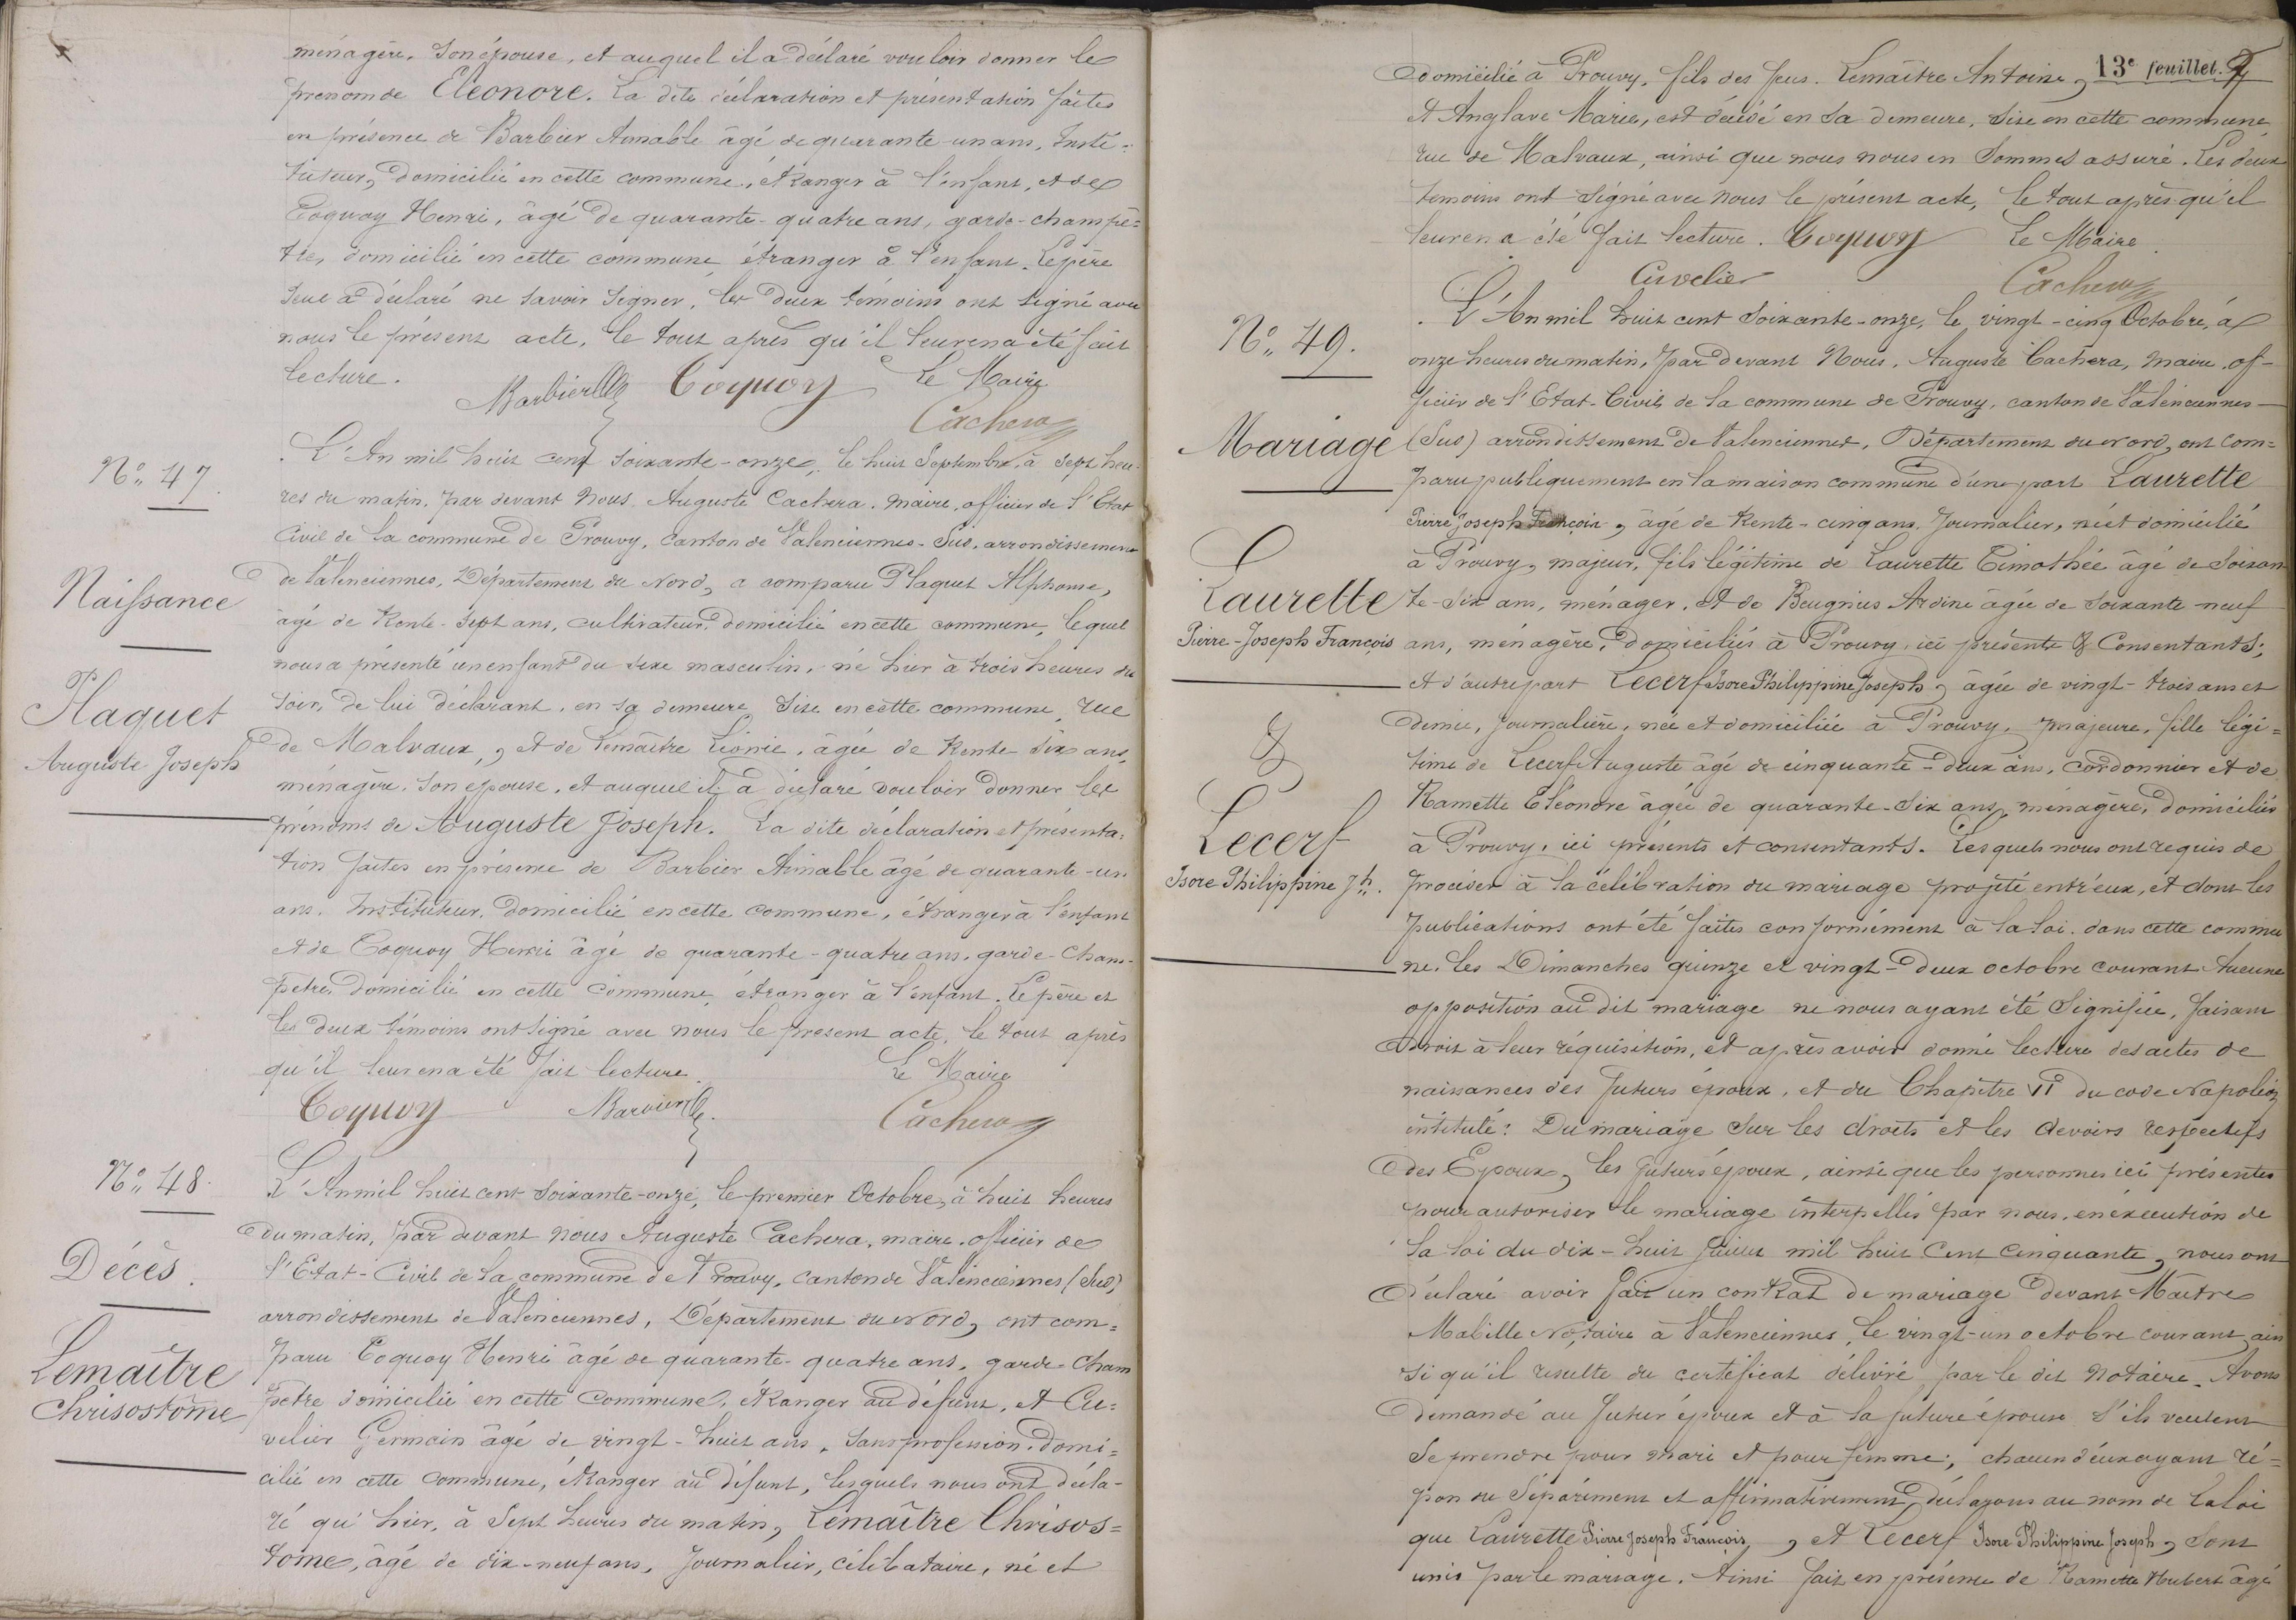 ménagère, son épouse, et auquel il a déclaré vouloir donner le
prénom de Eléonore. La dite déclaration et présentation faites
en présence de Barbier Aimable âgé de quarante-un ans, Insti=
tuteur, domicilié en cette commune, étranger à l'enfant, et de
Coquoy Henri, âgé de quarante-quatre ans, garde-champê=
tre, domicilié en cette commune, étranger à l'enfant. Le père
seul a déclaré ne savoir signer, les deux témoins ont signé avec
nous le présent acte, le tout après qu'il leur en a été fait
lecture.
Barbier Coquoy Le Maire
Cachera
N° 47.
Naissance
Plaquet
Auguste Joseph
L'An mil huit cent soixante-onze, le huit Septembre, à sept heu-
res du matin, par devant Nous, Auguste Cachera, maire, officier de l'Etat
Civil de la commune de Prouvy, Canton de Valenciennes-Sud, arrondissement
de Valenciennes, Département du Nord, a comparu Plaquet Alphonse,
âgé de trente-sept ans, cultivateur, domicilié en cette commune, lequel
nous a présenté un enfant du sexe masculin, né hier à trois heures du
soir, de lui déclarant, en sa demeure, sise en cette commune, rue
de Malvaux, et de Lemaître Léonie, âgée de trente-six ans,
ménagère, son épouse, et auquel il a déclaré vouloir donner les
prénoms de Auguste Joseph. La dite déclaration et présenta=
tion faites en présence de Barbier Aimable âgé de quarante-un
ans, Instituteur, domicilié en cette commune, étranger à l'enfant
et de Coquoy Henri âgé de quarante-quatre ans, garde-cham-
pêtre, domicilié en cette commune, étranger à l'enfant. Le père et
les deux témoins ont signé avec nous le présent acte, le tout après
qu'il leur en a été fait lecture. Le Maire
Coquoy Barbier Cachera
N° 48.
Décès.
Lemaître
Chrisostôme
L'An mil huit cent soixante-onze, le premier Octobre, à huit heures
du matin, par devant nous Auguste Cachera, maire, officier de
l'Etat-Civil de la commune de Prouvy, canton de Valenciennes (Sud)
arrondissement de Valenciennes, Département du Nord, ont com=
paru Coquoy Henri âgé de quarante-quatre ans, garde-cham
pêtre domicilié en cette commune, étranger au défunt, et Cu=
velier Germain âgé de vingt-huit ans, sans profession, domi=
cilié en cette commune, étranger au défunt, lesquels nous ont décla-
ré qu'hier, à sept heures du matin, Lemaître Chrisos=
tome, âgé de dix-neuf ans, journalier, célibataire, né et
13e feuillet.
domicilié à Prouvy, fils des feus Lemaître Antoine,
et Anglave Marie, est décédé en sa demeure, sise en cette commune
rue de Malvaux, ainsi que nous nous en sommes assuré. Les deux
témoins ont signé avec nous le présent acte, le tout après qu'il
leur en a été fait lecture. Coquoy Le Maire
Cuvelier Cachera
N° 49.
Mariage
Laurette
Pierre-Joseph François
&
Lecerf
Isore Philippine Jh.
L'An mil huit cent soixante-onze, le vingt-cinq Octobre, à
onze heures du matin, par devant Nous, Auguste Cachera, maire, of-
ficier de l'Etat-Civil de la commune de Prouvy, canton de Valenciennes
(Sud) arrondissement de Valenciennes, Département du Nord, ont com=
paru publiquement en la maison commune d'une part Laurette
Pierre Joseph François, âgé de trente-cinq ans, journalier, né et domicilié
à Prouvy, majeur, fils légitime de Laurette Timothée âgé de soixan
te-six ans, ménager, et de Beugnies Ardine âgée de soixante-neuf
ans, ménagère, domiciliés à Prouvy, ici présents & Consentants;
et d'autre part Lecerf Isore Philippine Joseph, âgée de vingt-trois ans et
demie, journalière, née et domiciliée à Prouvy, majeure, fille légi=
time de Lecerf Auguste âgé de cinquante-deux ans, cordonnier et de
Ramette Eléonore âgée de quarante-six ans, ménagère, domiciliés
à Prouvy, ici présents et consentants. Lesquels nous ont requis de
procéder à la célébration du mariage projeté entr'eux, et dont les
publications ont été faites conformément à la loi dans cette commu
ne, les Dimanches quinze et vingt-deux octobre courant Aucune
opposition au dit mariage ne nous ayant été signifiée, faisant
droit à leur réquisition, et après avoir donné lecture des actes de
naissances des futurs époux, et du Chapitre VI du code Napoléon
intitulé: Du mariage sur les droits et les devoirs respectifs
des Epoux, les futurs époux, ainsi que les personnes ici présentes
pour autoriser le mariage interpellés par nous, en exécution de
la loi du dix-huit juillet mil huit cent cinquante, nous ont
déclaré avoir fait un contrat de mariage devant Maître
Mabille Notaire à Valenciennes, le vingt-un octobre courant, ain
si qu'il résulte du certificat délivré par le dit Notaire. Avons
demandé au futur époux et à la future épouse s'ils veulent
se prendre pour mari et pour femme; chacun d'eux ayant ré=
pondu séparément et affirmativement, déclarons au nom de la loi
que Laurette Pierre Joseph François, et Lecerf Isore Philippine Joseph, sont
unis par le mariage. Ainsi fait en présence de Ramette Hubert âgé